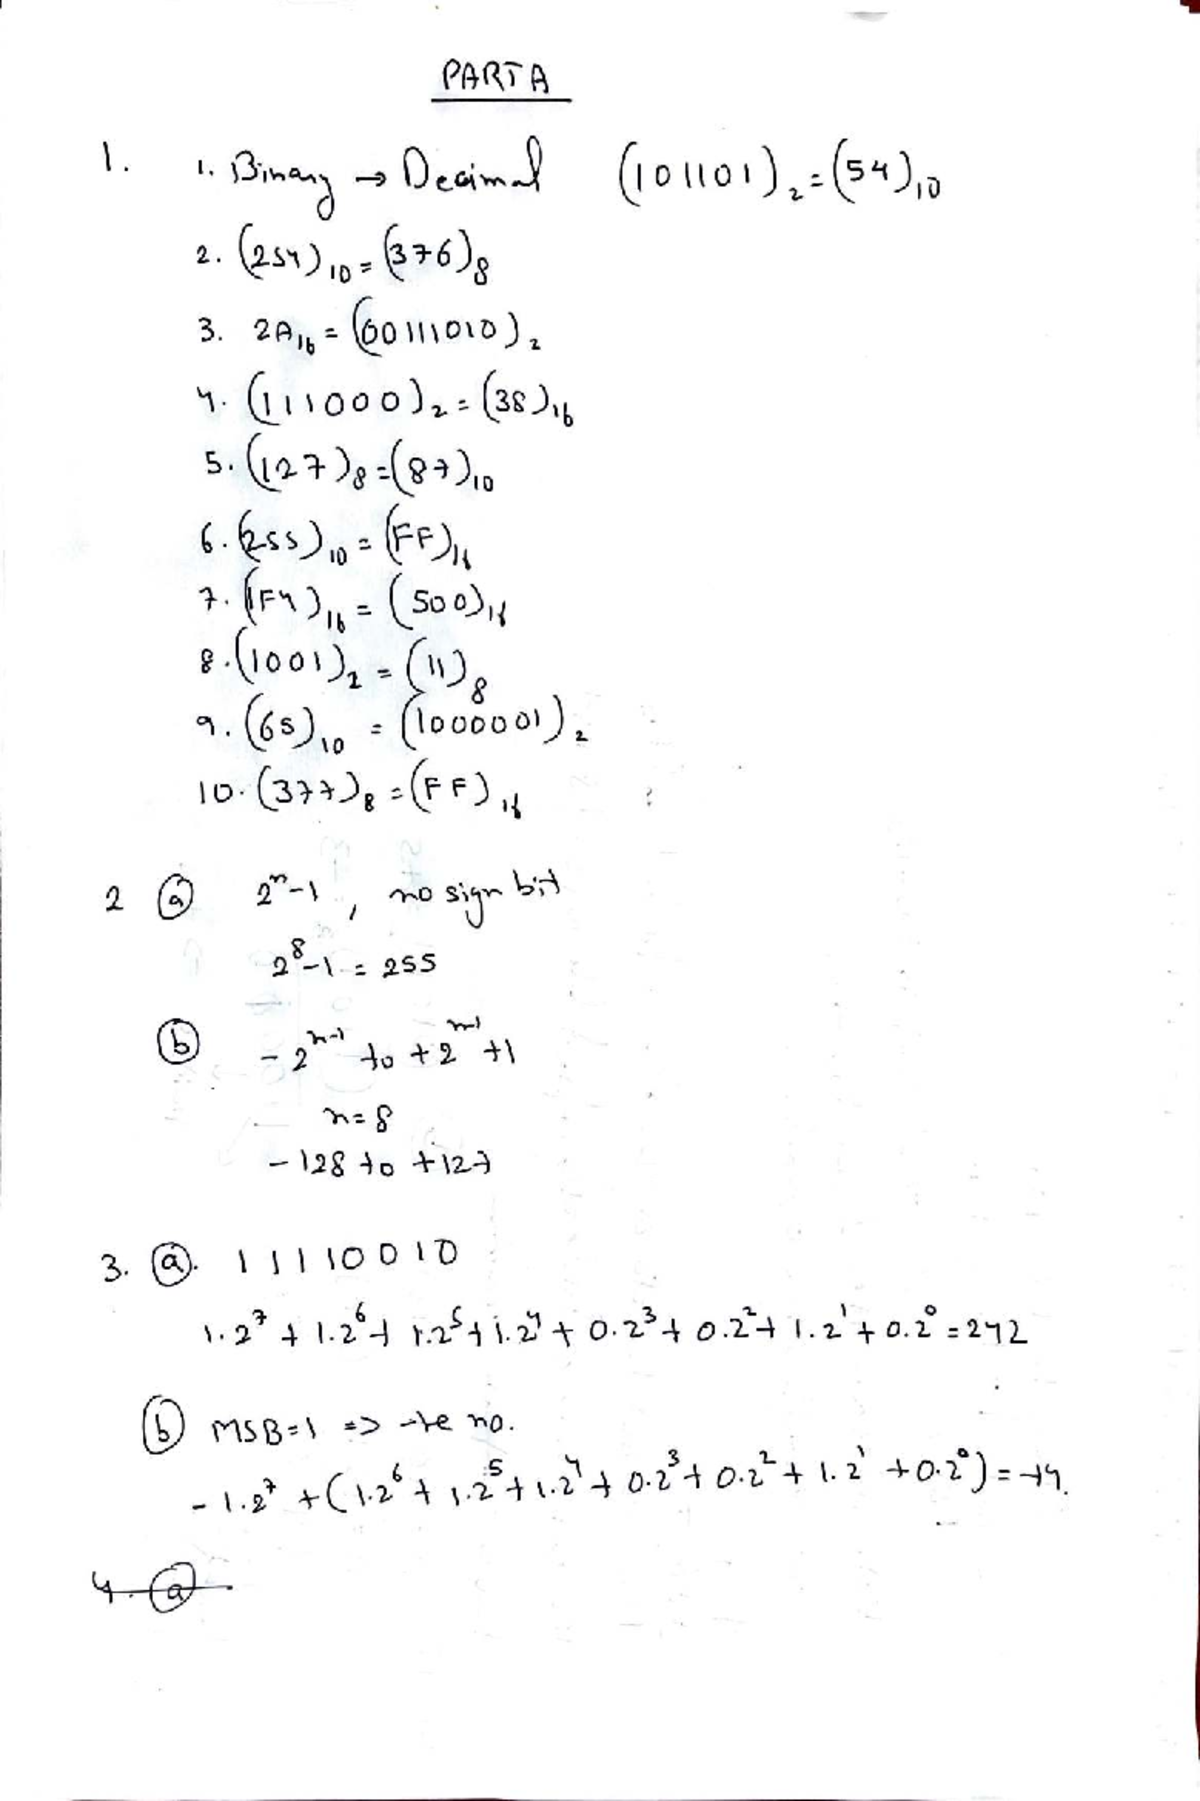 PART A
1. 1. Binary → Decimal (101101)₂ = (54)₁₀
2. (254)₁₀ = (376)₈
3. 2A₁₆ = (00111010)₂
4. (111000)₂ = (38)₁₆
5. (127)₈ = (87)₁₀
6. (255)₁₀ = (FF)₁₆
7. (1F4)₁₆ = (500)₁₆
8. (1001)₂ = (11)₈
9. (65)₁₀ = (1000001)₂
10. (377)₈ = (FF)₁₆
2 ⓐ 2ⁿ-1, no sign bit
2⁸-1 = 255
ⓑ -2ⁿ⁻¹ to +2ⁿ⁻¹+1
n=8
-128 to +127
3. ⓐ. 11110010
1.2⁷ + 1.2⁶ + 1.2⁵ + 1.2⁴ + 0.2³ + 0.2² + 1.2¹ + 0.2⁰ = 242
ⓑ MSB=1 => -ve no.
-1.2⁷ + (1.2⁶ + 1.2⁵ + 1.2⁴ + 0.2³ + 0.2² + 1.2¹ + 0.2⁰) = -14.
4. ⓐ